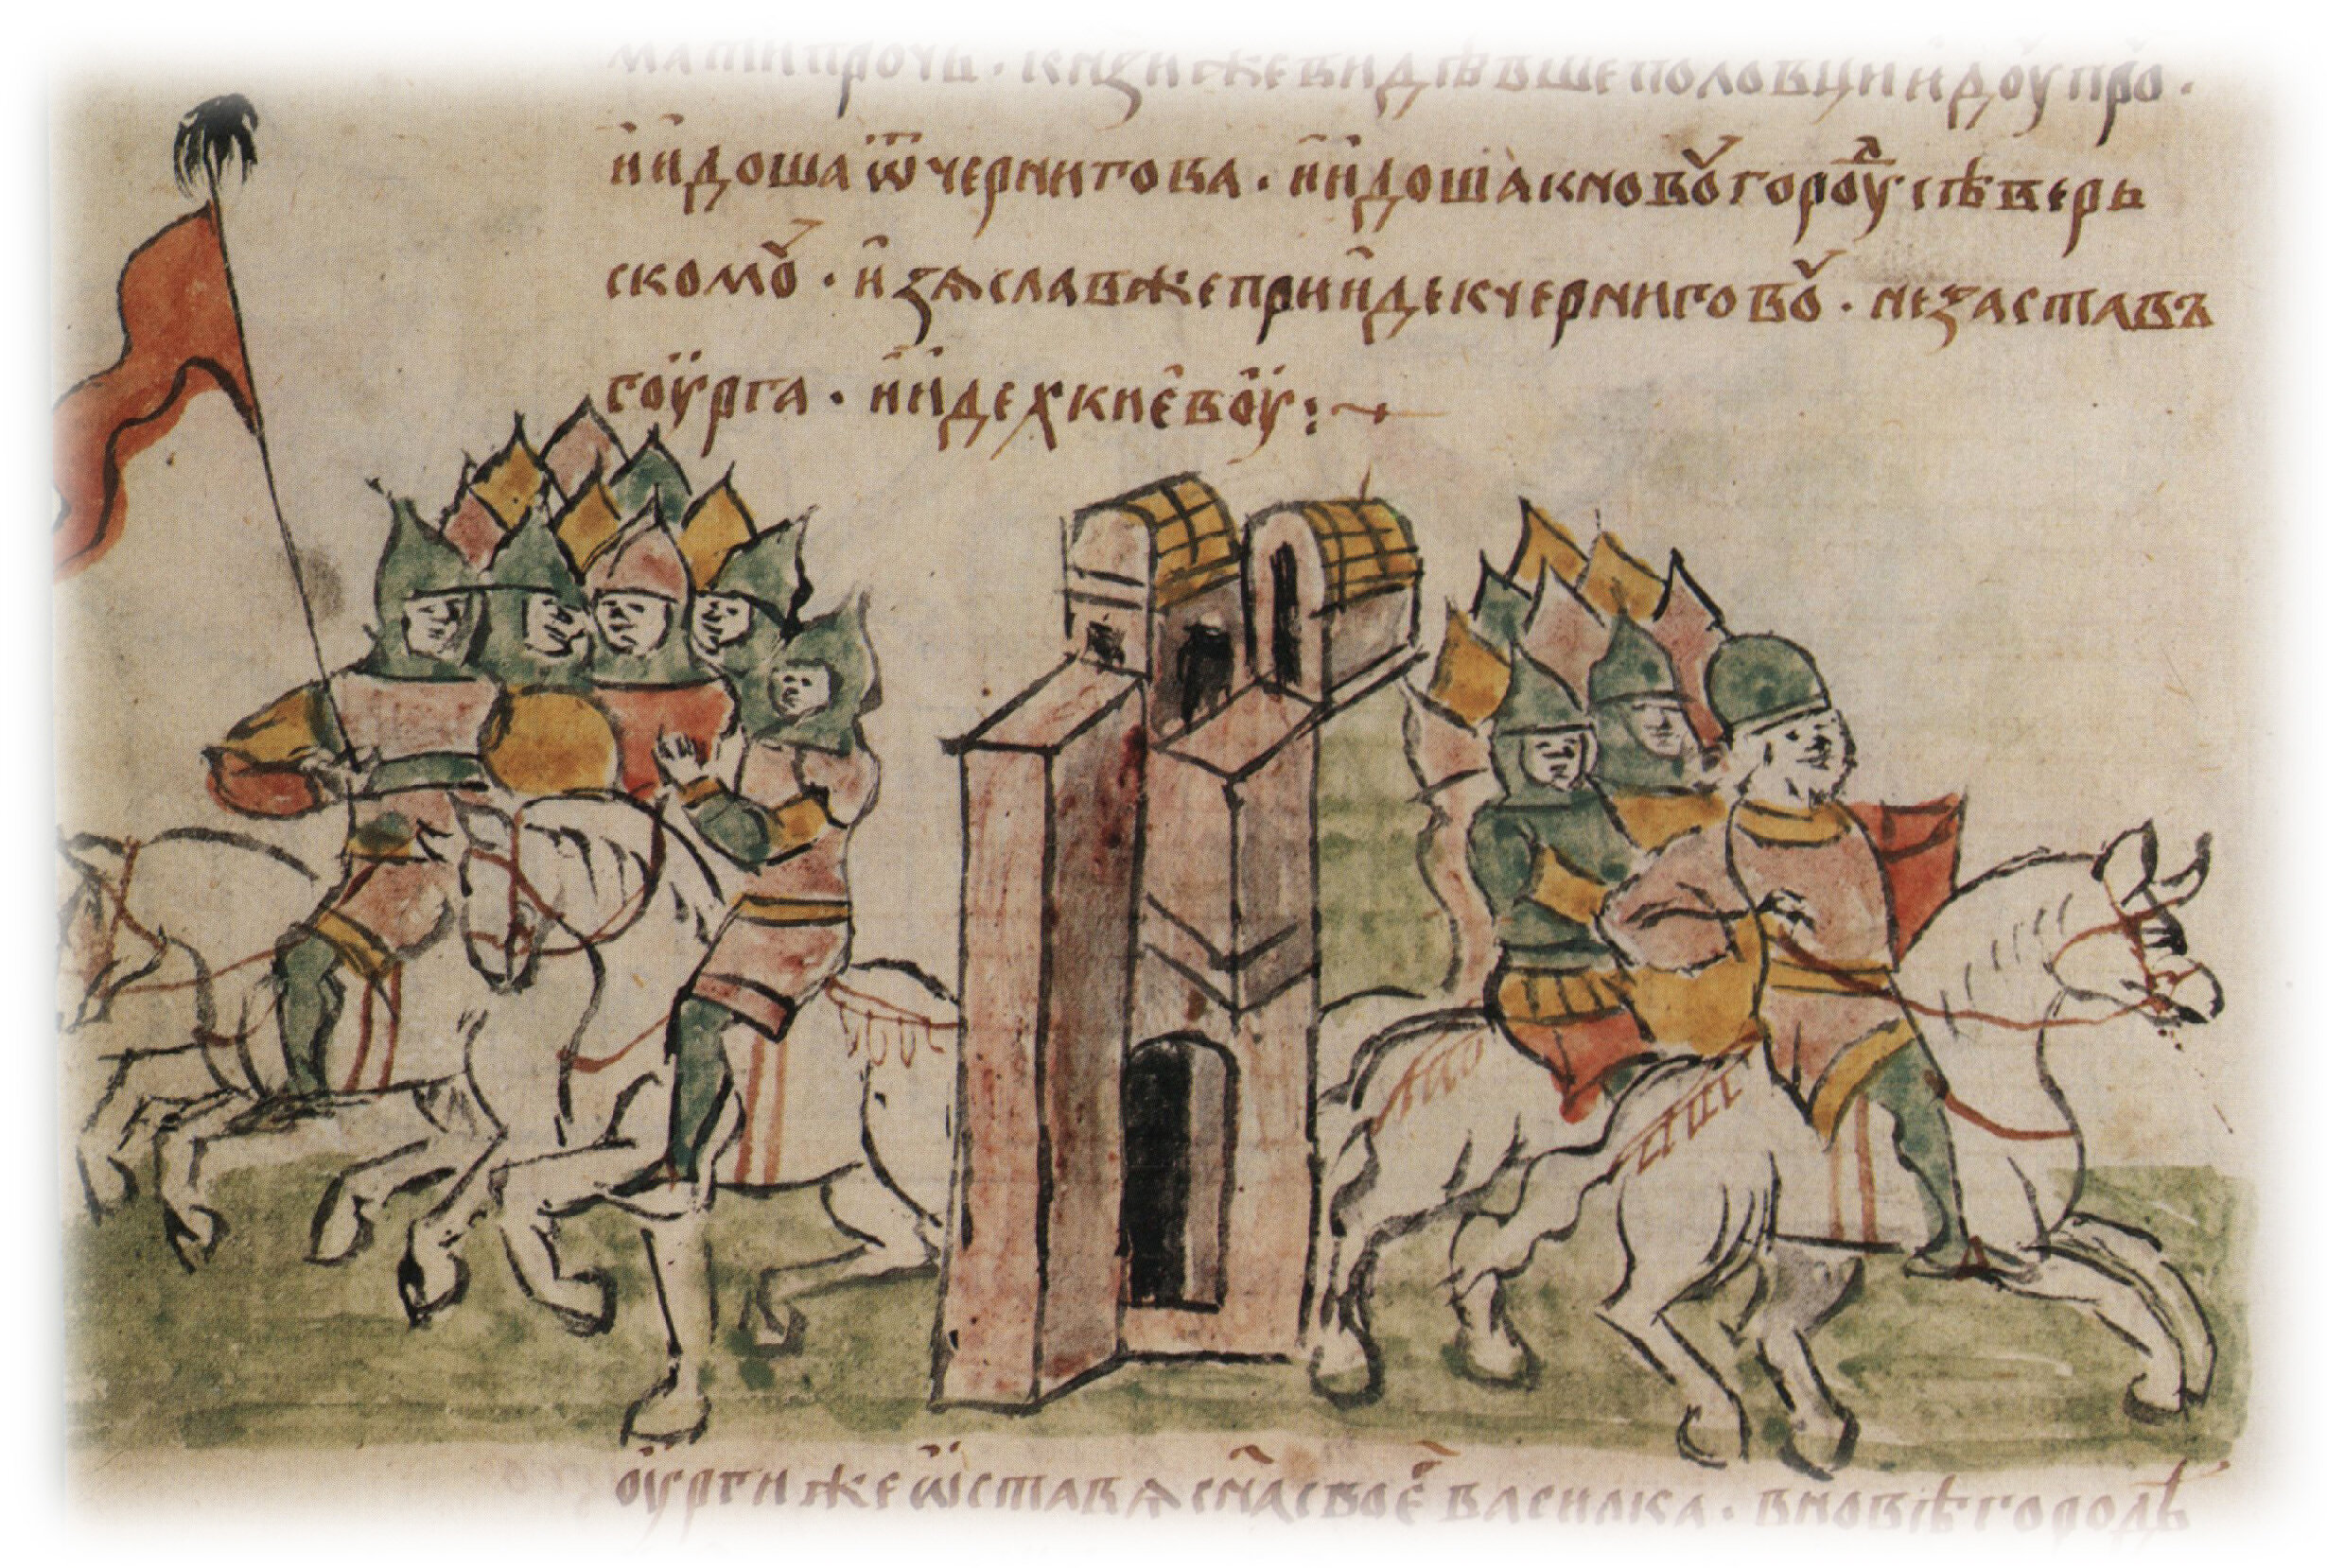 мати прочь · кнѧзи же видѣвше половци идоу про ·
и идоша ѿ чернигова · и идоша к новоⷢ҇городоу сѣверь
скомоу · изѧславже прииде к черниговоу · незаставъ
гоурга · и идех киевоу :~
оурги же ѡставѧ сн҃а своеⷢ҇ василка · в новѣгородѣ